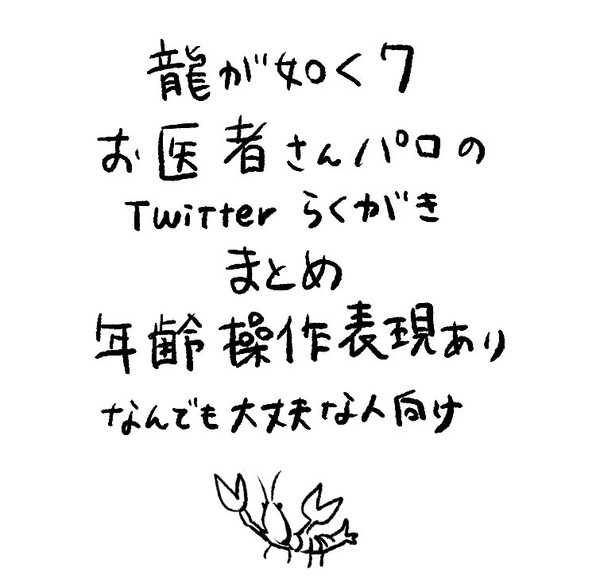 龍が如く7
お医者さんパロの
Twitterらくがき
まとめ
年齢操作表現あり
なんでも大丈夫な人向け